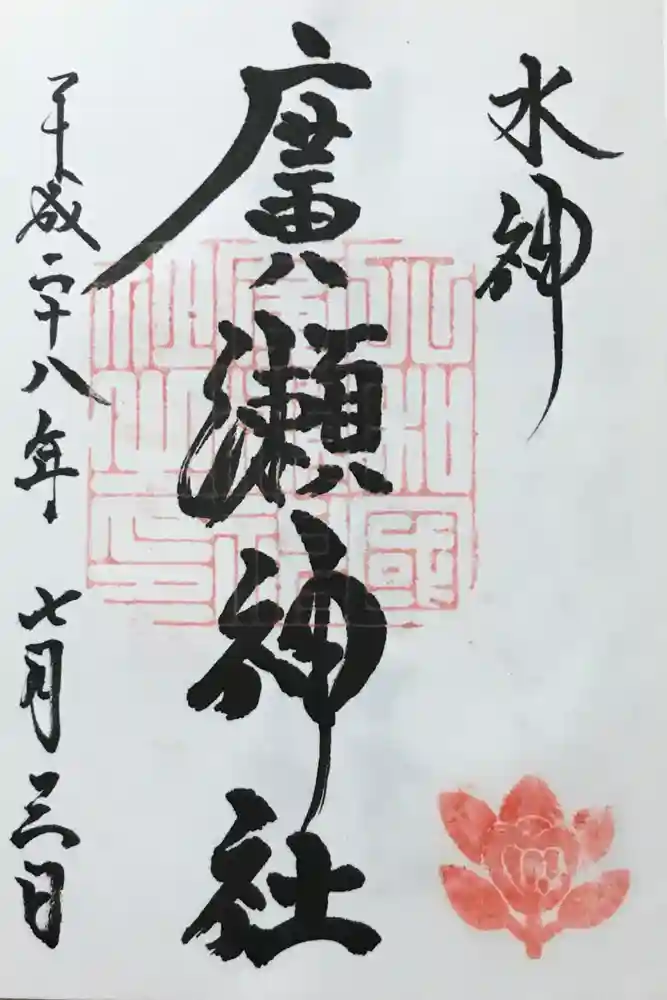 水神
廣瀬神社
平成二十八年 七月三日